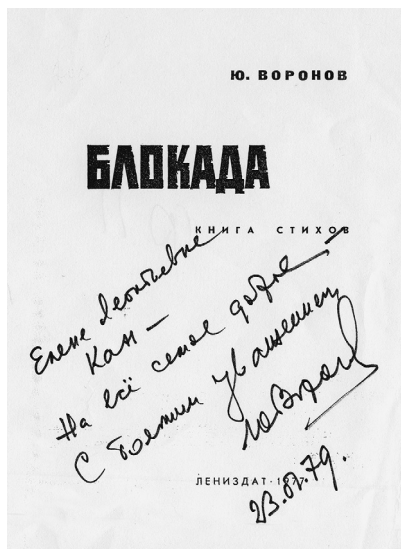 Ю. ВОРОНОВ
БЛОКАДА
КНИГА СТИХОВ
Елене Леонтьевне
Кан –
На всё самое доброе –
С большим уважением
ЮВорон
ЛЕНИЗДАТ · 1977
23.01.79.